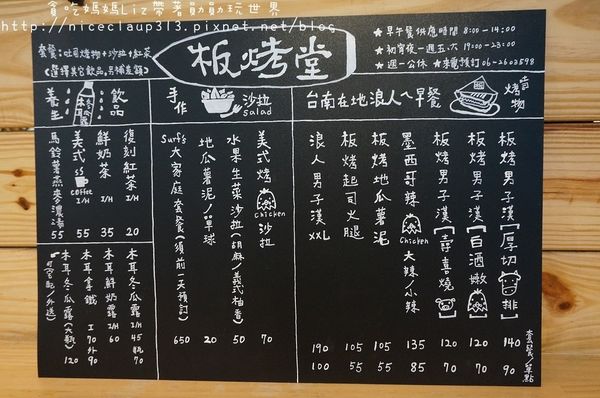 貪吃媽媽Liz帶著勛勛玩世界
http://niceclaup313.pixnet.net/blog
套餐:吐司烤物+沙拉+紅茶
(選擇其它飲品,另補差額)
板烤堂
★早午餐供應時間 8:00-14:00
★初宵夜-週五.六 19:00-23:00
★週一公休 ★來電預訂 06-2603598
養生
木耳露
飲品
復刻紅茶 I/H 20
鮮奶茶 I/H 35
美式 coffee I/H 55
馬鈴薯燕麥濃湯 55
木耳冬瓜露 I/H 45 瓶70
木耳鮮奶露 I/H 60
木耳拿鐵 I 70 外90
木耳冬瓜露(大瓶) 120
(可宅配/外送)
手作
沙拉
Salad
美式烤chicken沙拉 70
水果生菜沙拉(胡麻/義式柚香) 50
地瓜薯泥/單球 20
Surf's大家庭套餐(須前一天預訂) 650
台南在地浪人ㄟ早餐
烤物
板烤男子漢[厚切排] 140 90
板烤男子漢[白酒嫩] 120 70
板烤男子漢[壽喜燒] 120 70
墨西哥辣chicken大辣/小辣 135 85
板烤地瓜薯泥 105 55
板烤起司火腿 105 55
浪人男子漢XXL 190 100
套餐/單點